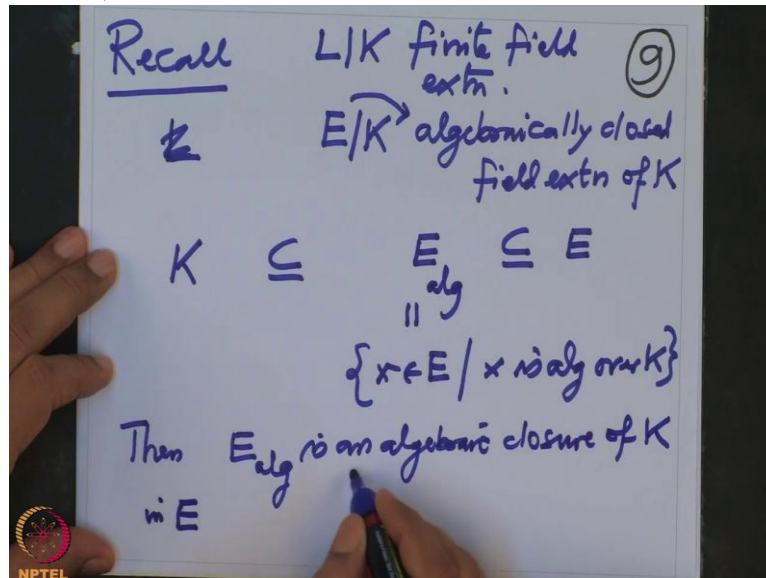 Recall L|K finite field 9
extn.
E|K algebraically closed
field extn of K
K ⊆ E_alg ⊆ E
||
{x ∈ E | x is alg over K}
Then E_alg is an algebraic closure of K
in E
NPTEL